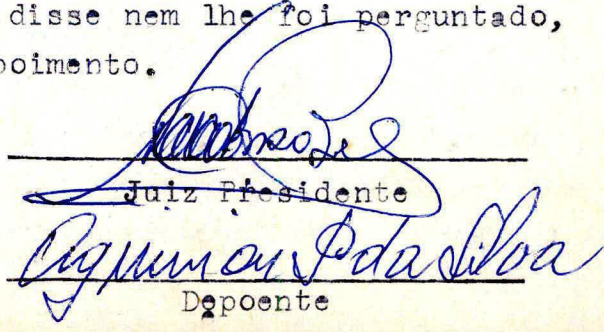 disse nem lhe foi perguntado,
poimento.
Juiz Presidente
P da Silva
Depoente